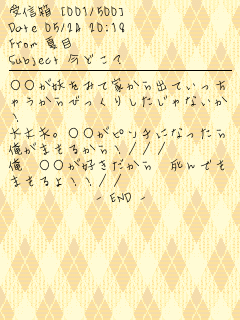 受信箱 [001/500]
Date 05/24 20:18
From 夏目
Subject 今どこ?
○○が妖をみて家から出ていっち
ゃうからびっくりしたじゃないか
!
大丈夫。○○がピンチになったら
俺がまもるから!///
俺 ○○が好きだから 死んでも
まもるよ!!//
- END -